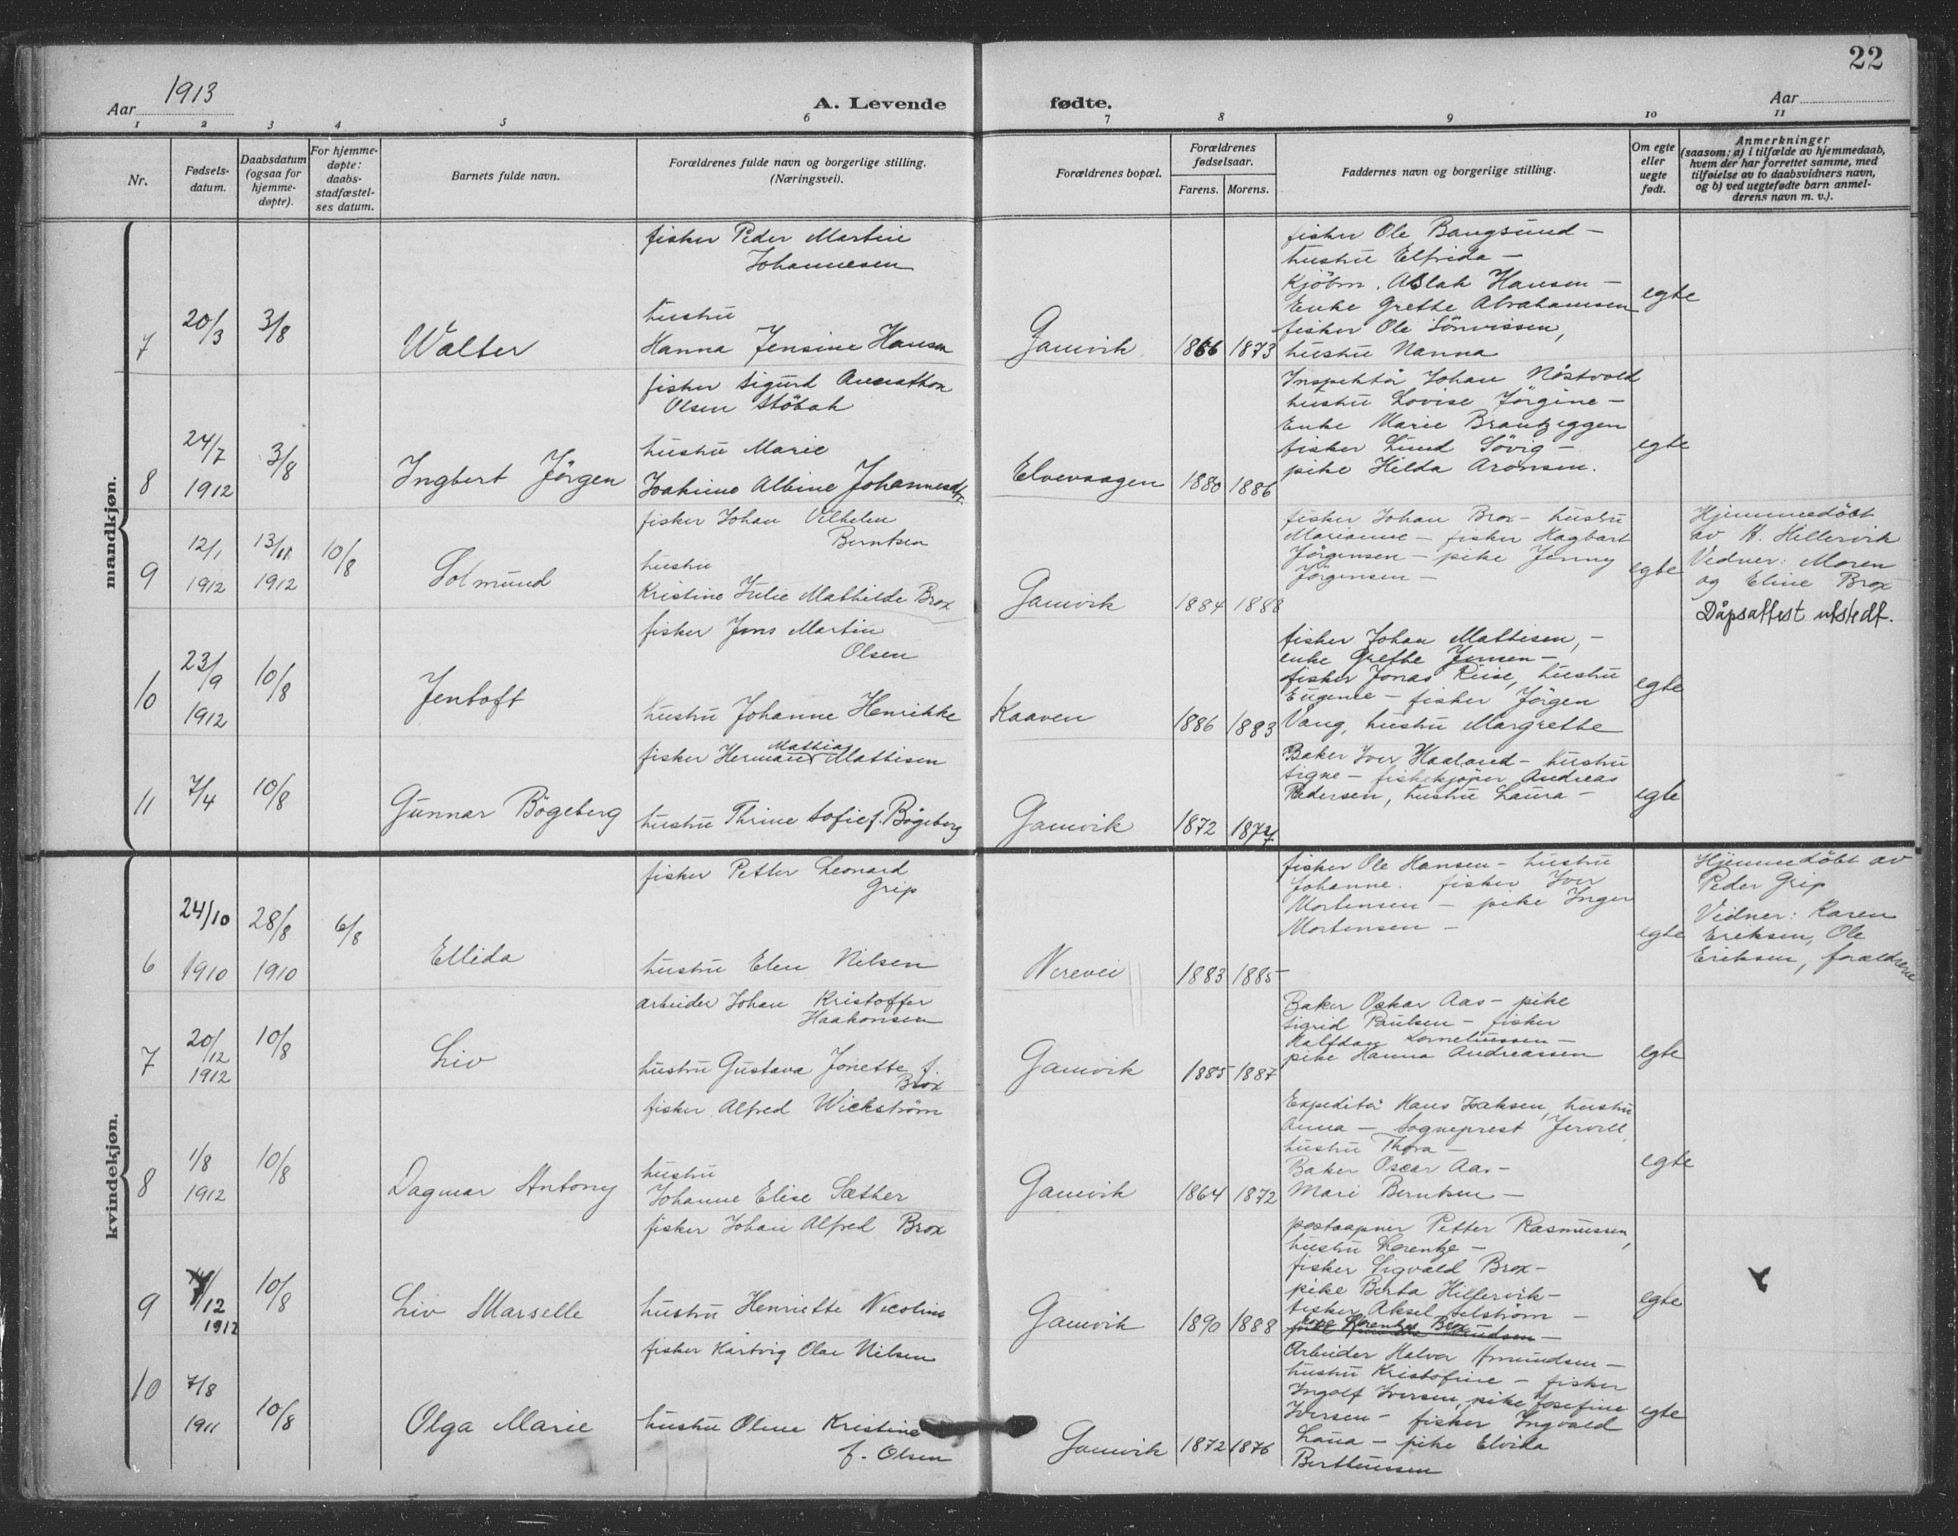 22
Aar 1913
A. Levende
fødte.
Aar
1 2 3 4 5 6 7 8 9 10 11
Nr.
Fødsels-
datum.
Daabsdatum
(ogsaa for
hjemme-
døpte).
For hjemme-
døpte:
daabs-
stadfæstel-
ses datum.
Barnets fulde navn.
Forældrenes fulde navn og borgerlige stilling.
(Næringsvei).
Forældrenes bopæl.
Forældrenes
fødselsaar.
Farens. Morens.
Faddernes navn og borgerlige stilling.
Om egte
eller
uegte
født.
Anmerkninger
(saasom: a) i tilfælde av hjemmedaab,
hvem der har forrettet samme, med
tilføielse av to daabsvidners navn,
og b) ved uegtefødte barn anmel-
derens navn m. v.).
mandkjøn.
7
20/3
3/8
Walter
fisker Peder Martin
Johannesen
hustru
Hanna Jensine Hansen
Gamvik
1866 1873
fisker Ole Bangsund —
hustru Elfrida —
Kjöbm. Aslak Hansen —
Enke Grethe Abrahamsen
fisker Ole Sönvissen,
hustru Nanna
egte
8
24/7
1912
3/8
Ingbert Jörgen
fisker Sigurd
Olsen Stöbak
hustru Marie
Joakime Albine Johannesdtr.
Elvevaagen
1880 1886
Inspektör Johan Nöstvold
hustru Lovise Jörgine —
Enke Marie Brantzeggen
fisker Lund Sövig —
pike Hilda Aronsen.
egte
9
12/1
1912
13/11
1912
10/8
Solmund
fisker Johan Vilhelm
Berntsen
hustru
Kristine Julie Mathilde Brox
Gamvik
1884 1888
fisker Johan Brox — hustru
Marianne — fisker Hagbart
Jörgensen — pike Jenny
Jörgensen —
egte
Hjemmedöbt
av H. Hellervik
Vidner: Moren
og Eline Brox
Dåpsattest utstedt.
10
23/9
1912
10/8
Jentoft
fisker Jens Martin
Olsen
hustru Johanne Henrikke
Kaaven
1886 1883
fisker Johan Mathisen, —
enke Grethe Jensen —
fisker Jonas Riise, hustru
Eugenie — fisker Jörgen
Vang, hustru Margrethe
egte
11
7/4
10/8
Gunnar Bögeberg
fisker Herman Mathias Mattisen
hustru Thrine Sofie f. Bögeberg
Gamvik
1872 1874
Baker Iver Haaland — hustru
Signe — fiskekjöper Andreas
Pedersen, hustru Laura —
egte
kvindekjøn.
6
24/10
1910
28/8
1910
6/8
Ellida
fisker Petter Leonard
Grip
hustru Elen Nilsen
Nervei
1883 1885
fisker Ole Hansen — hustru
Johanne. fisker Iver
Mortensen — pike Inger
Mortensen —
egte
Hjemmedöbt av
Peder Grip
Vidner: Karen
Eriksen, Ole
Eriksen, forældrene
7
20/12
1912
10/8
Liv
arbeider Johan Kristoffer
Haakonsen
hustru Gustava Jonette f.
Brox
Gamvik
1885 1887
Baker Oskar Aas — pike
Sigrid Paulsen — fisker
Halfdan Korneliussen —
pike Hanna Andreassen
egte
8
1/8
1912
10/8
Dagmar Antony
fisker Alfred Wickström
hustru
Johanne Elise Sæther
Gamvik
1864 1872
Expeditör Hans Isaksen, hustru
Anna — Sogneprest Jervell,
hustru Thora —
Baker Oscar Aas —
Mari Berntsen —
egte
9
/12
1912
10/8
Liv Marselle
fisker Johan Alfred Brox
hustru Henriette Nicoline
Gamvik
1890 1888
postaapner Petter Rasmussen,
hustru Lorentze —
fisker Sigvald Brox —
pike Berta Hillervik —
fisker Aksel Selström —
Lorentze Brox
egte
10
7/8
1911
10/8
Olga Marie
fisker Hartvig Olai Nilsen
hustru Oline Kristine
f. Olsen
Gamvik
1872 1876
Arbeider Halvor Amundsen —
hustru Kristofine — fisker
Ingolf Iversen, pike Josefine
Iversen — fisker Ingvald
Laua — pike Elvida
Bertheussen
egte